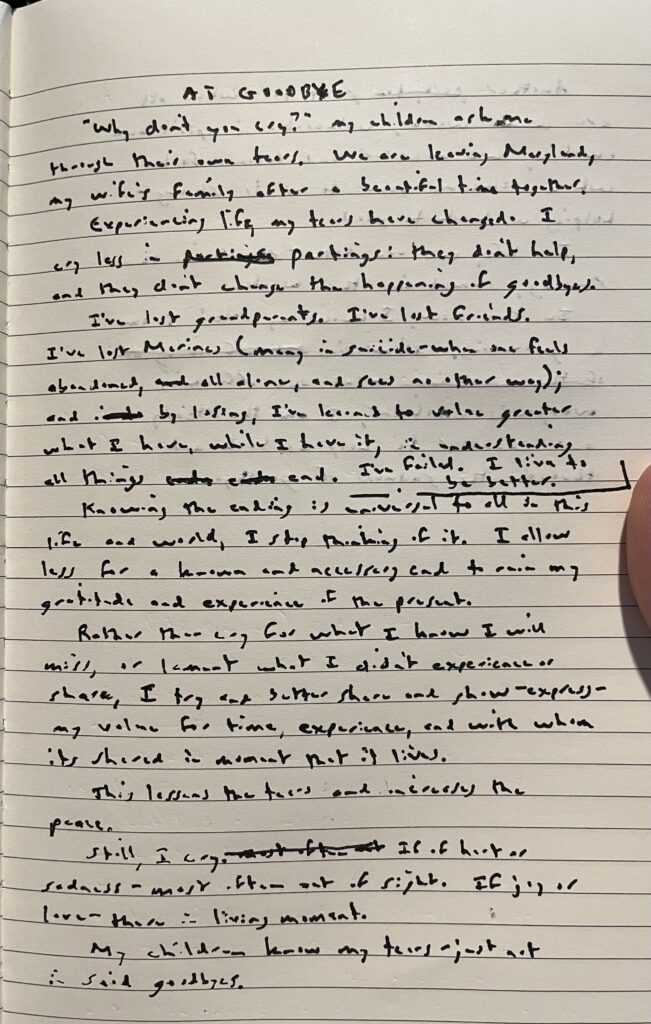 AT GOODBYE
"Why don't you cry?" my children ask me
through their own tears. We are leaving Maryland,
my wife's family after a beautiful time together.
Experiencing life, my tears have changed. I
cry less in partings partings: they don't help,
and they don't change the happening of goodbyes.
I've lost grandparents. I've lost friends.
I've lost Marines (many in suicide-when one feels
abandoned, and all alone, and sees no other way);
and by losing, I've learned to value greater
what I have, while I have it, in understanding
all things end. I've failed. I live to
be better.
Knowing the ending is universal to all in this
life and world, I stop thinking of it. I allow
less for a known and necessary end to ruin my
gratitude and experience of the present.
Rather than cry for what I know I will
miss, or lament what I didn't experience or
share, I try and better share and show-express-
my value for time, experience, and with whom
its shared in moment that it lives.
This lessens the tears and increases the
peace.
Still, I cry. most often out If of hurt or
sadness-most often out of sight. If joy or
love-there in living moment.
My children know my tears-just not
in said goodbyes.